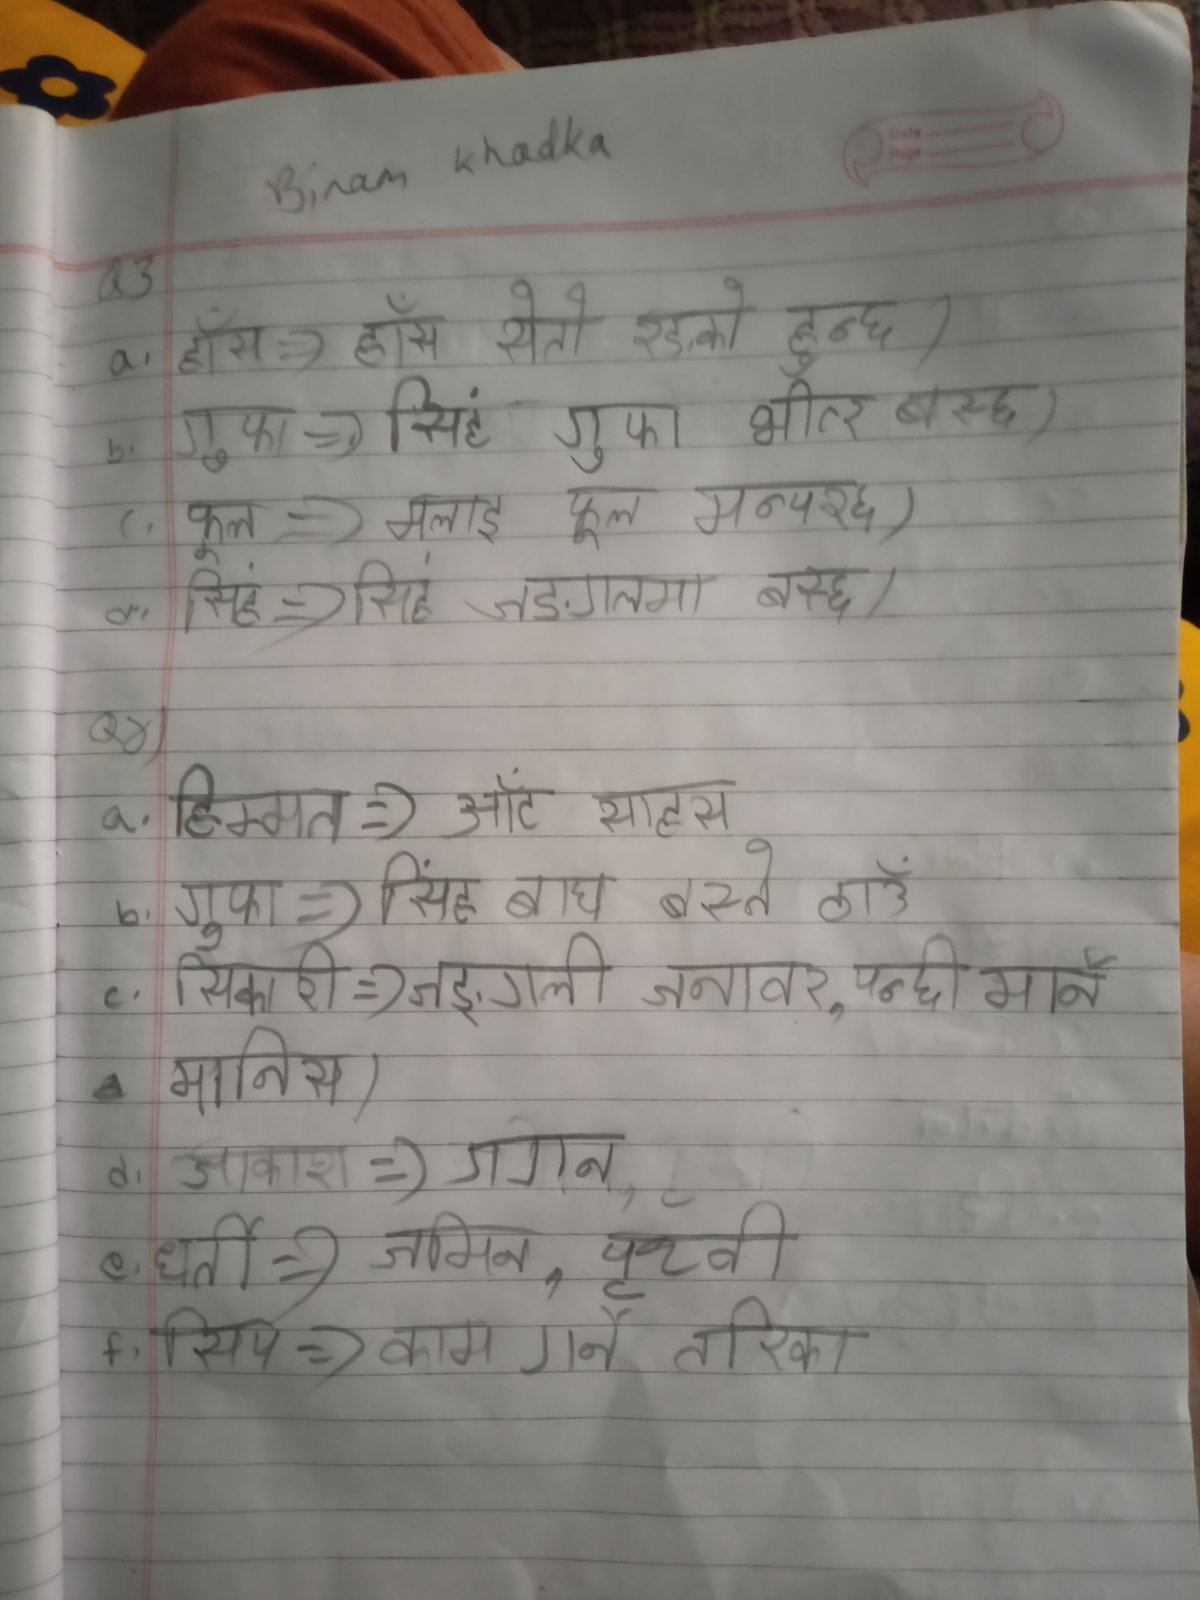 Biram Khadka
Date
Page
Q3
a. हाँस => हाँस सेतो रङ.को हुन्छ।
b. गुफा => सिहं गुफा भीत्र बस्छ।
c. फूल => मलाइ फूल मन्परछ।
d. सिहं => सिहं जङ.गलमा बस्छ।
Q४)
a. हिम्मत => आँट साहस
b. गुफा => सिंह बाघ बस्ने ठाउँ
c. सिकारी => जङ्.गली जनावर, पन्छी मार्ने
मानिस।
d. आकाश => गगन,
e. धर्ती => जमिन, पृथ्वी
f. सिप => काम गर्ने तरिका